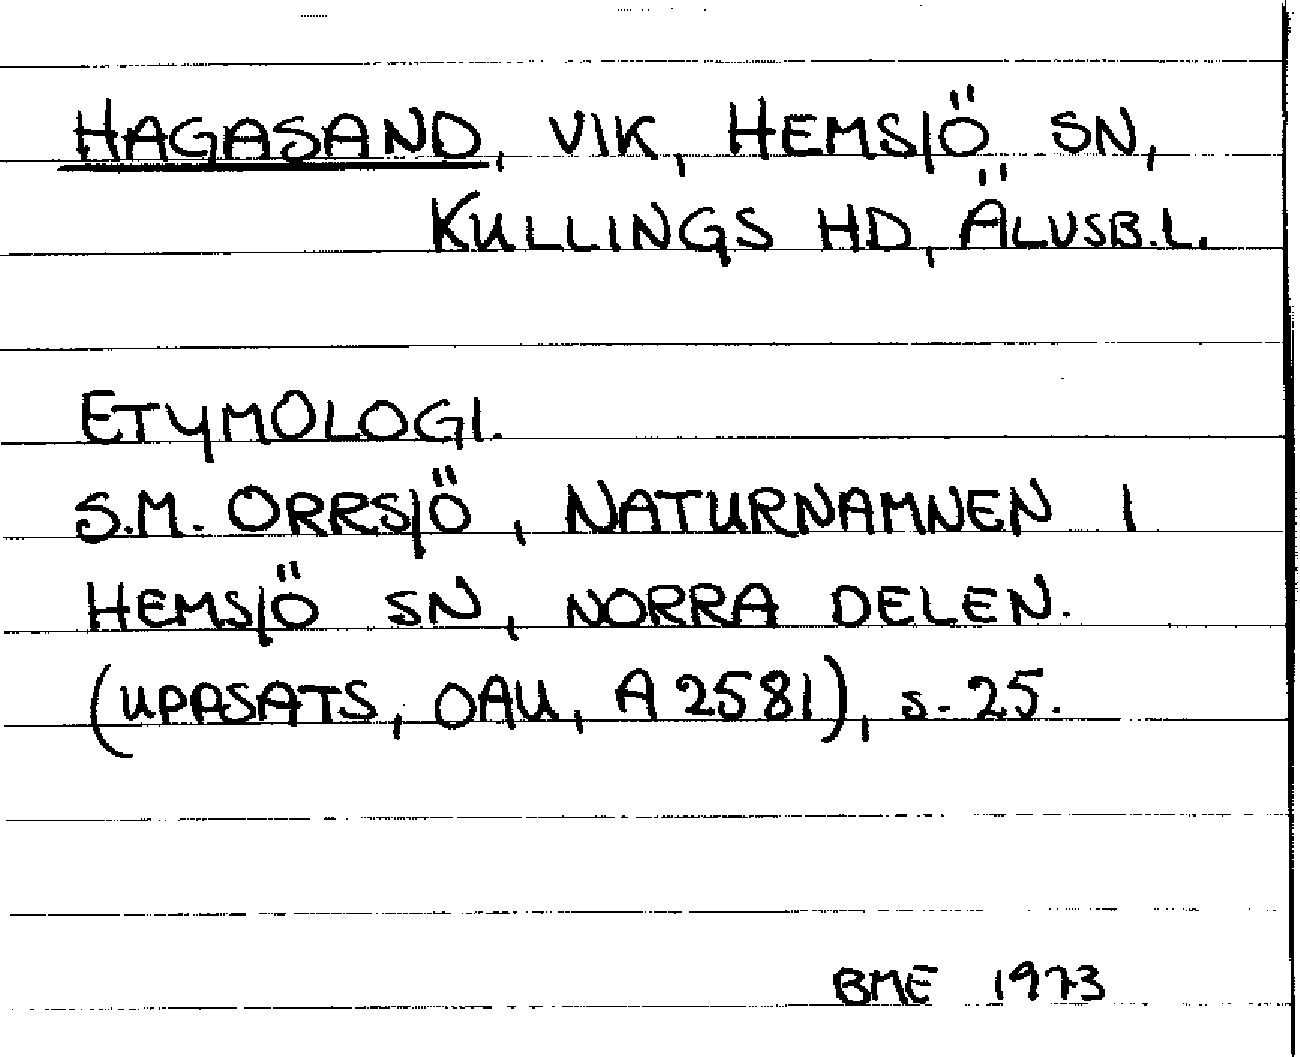 HAGASAND, VIK, HEMSJÖ SN,
KULLINGS HD, ÄLVSB.L.
ETYMOLOGI.
S.M. ORRSJÖ, NATURNAMNEN I
HEMSJÖ SN, NORRA DELEN.
(UPPSATS, OAU, A 2581), s. 25.
BME 1973